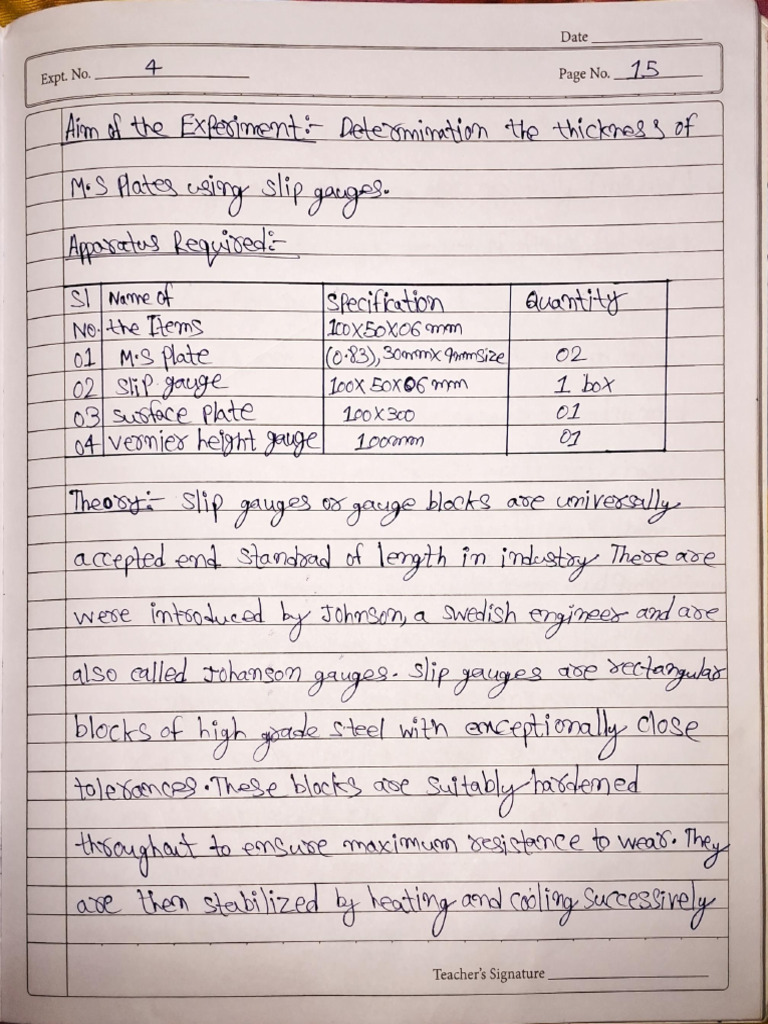 Date
Expt. No. 4
Page No. 15
Aim of the Experiment:- Determination the thickness of
M.S Plates using slip gauges.
Apparatus Required:-
Sl Name of Specification Quantity
No. the Items 100x50x06mm
01 M.S plate (0.83), 30mmx9mmsize 02
02 Slip gauge 100x50x06mm 1 box
03 surface plate 100x300 01
04 vernier height gauge 100mm 01
Theory:- Slip gauges or gauge blocks are universally
accepted end standrad of length in industry There are
were introduced by Johnson, a swedish engineer and are
also called Johanson gauges. Slip gauges are rectangular
blocks of high grade steel with exceptionally close
tolerances. These blocks are suitably hardened
throughout to ensure maximum resistance to wear. They
are then stabilized by heating and cooling successively
Teacher's Signature